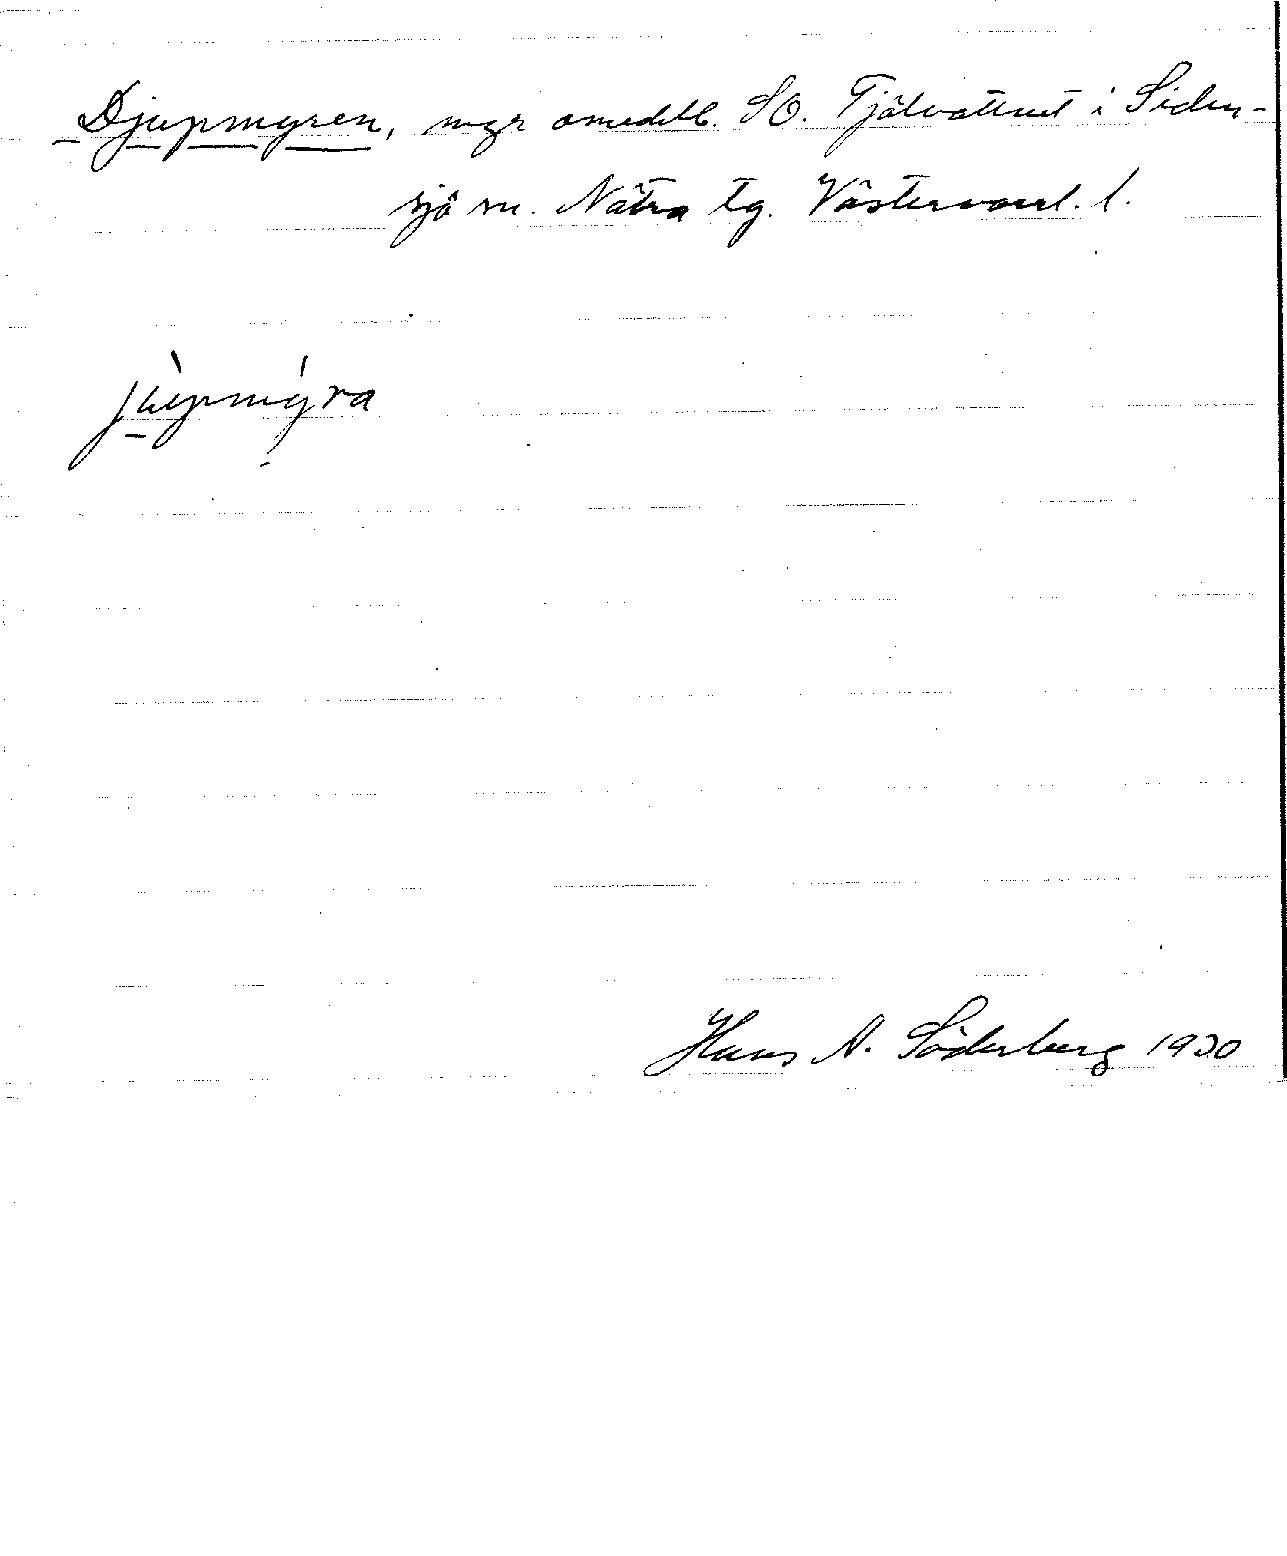 Djupmyren, myr omedelb. SO. Tjälvattnet i Siden-
sjö sn. Nätra tg. Västernorrl. l.
jùpmýra
Hans N. Söderberg 1930